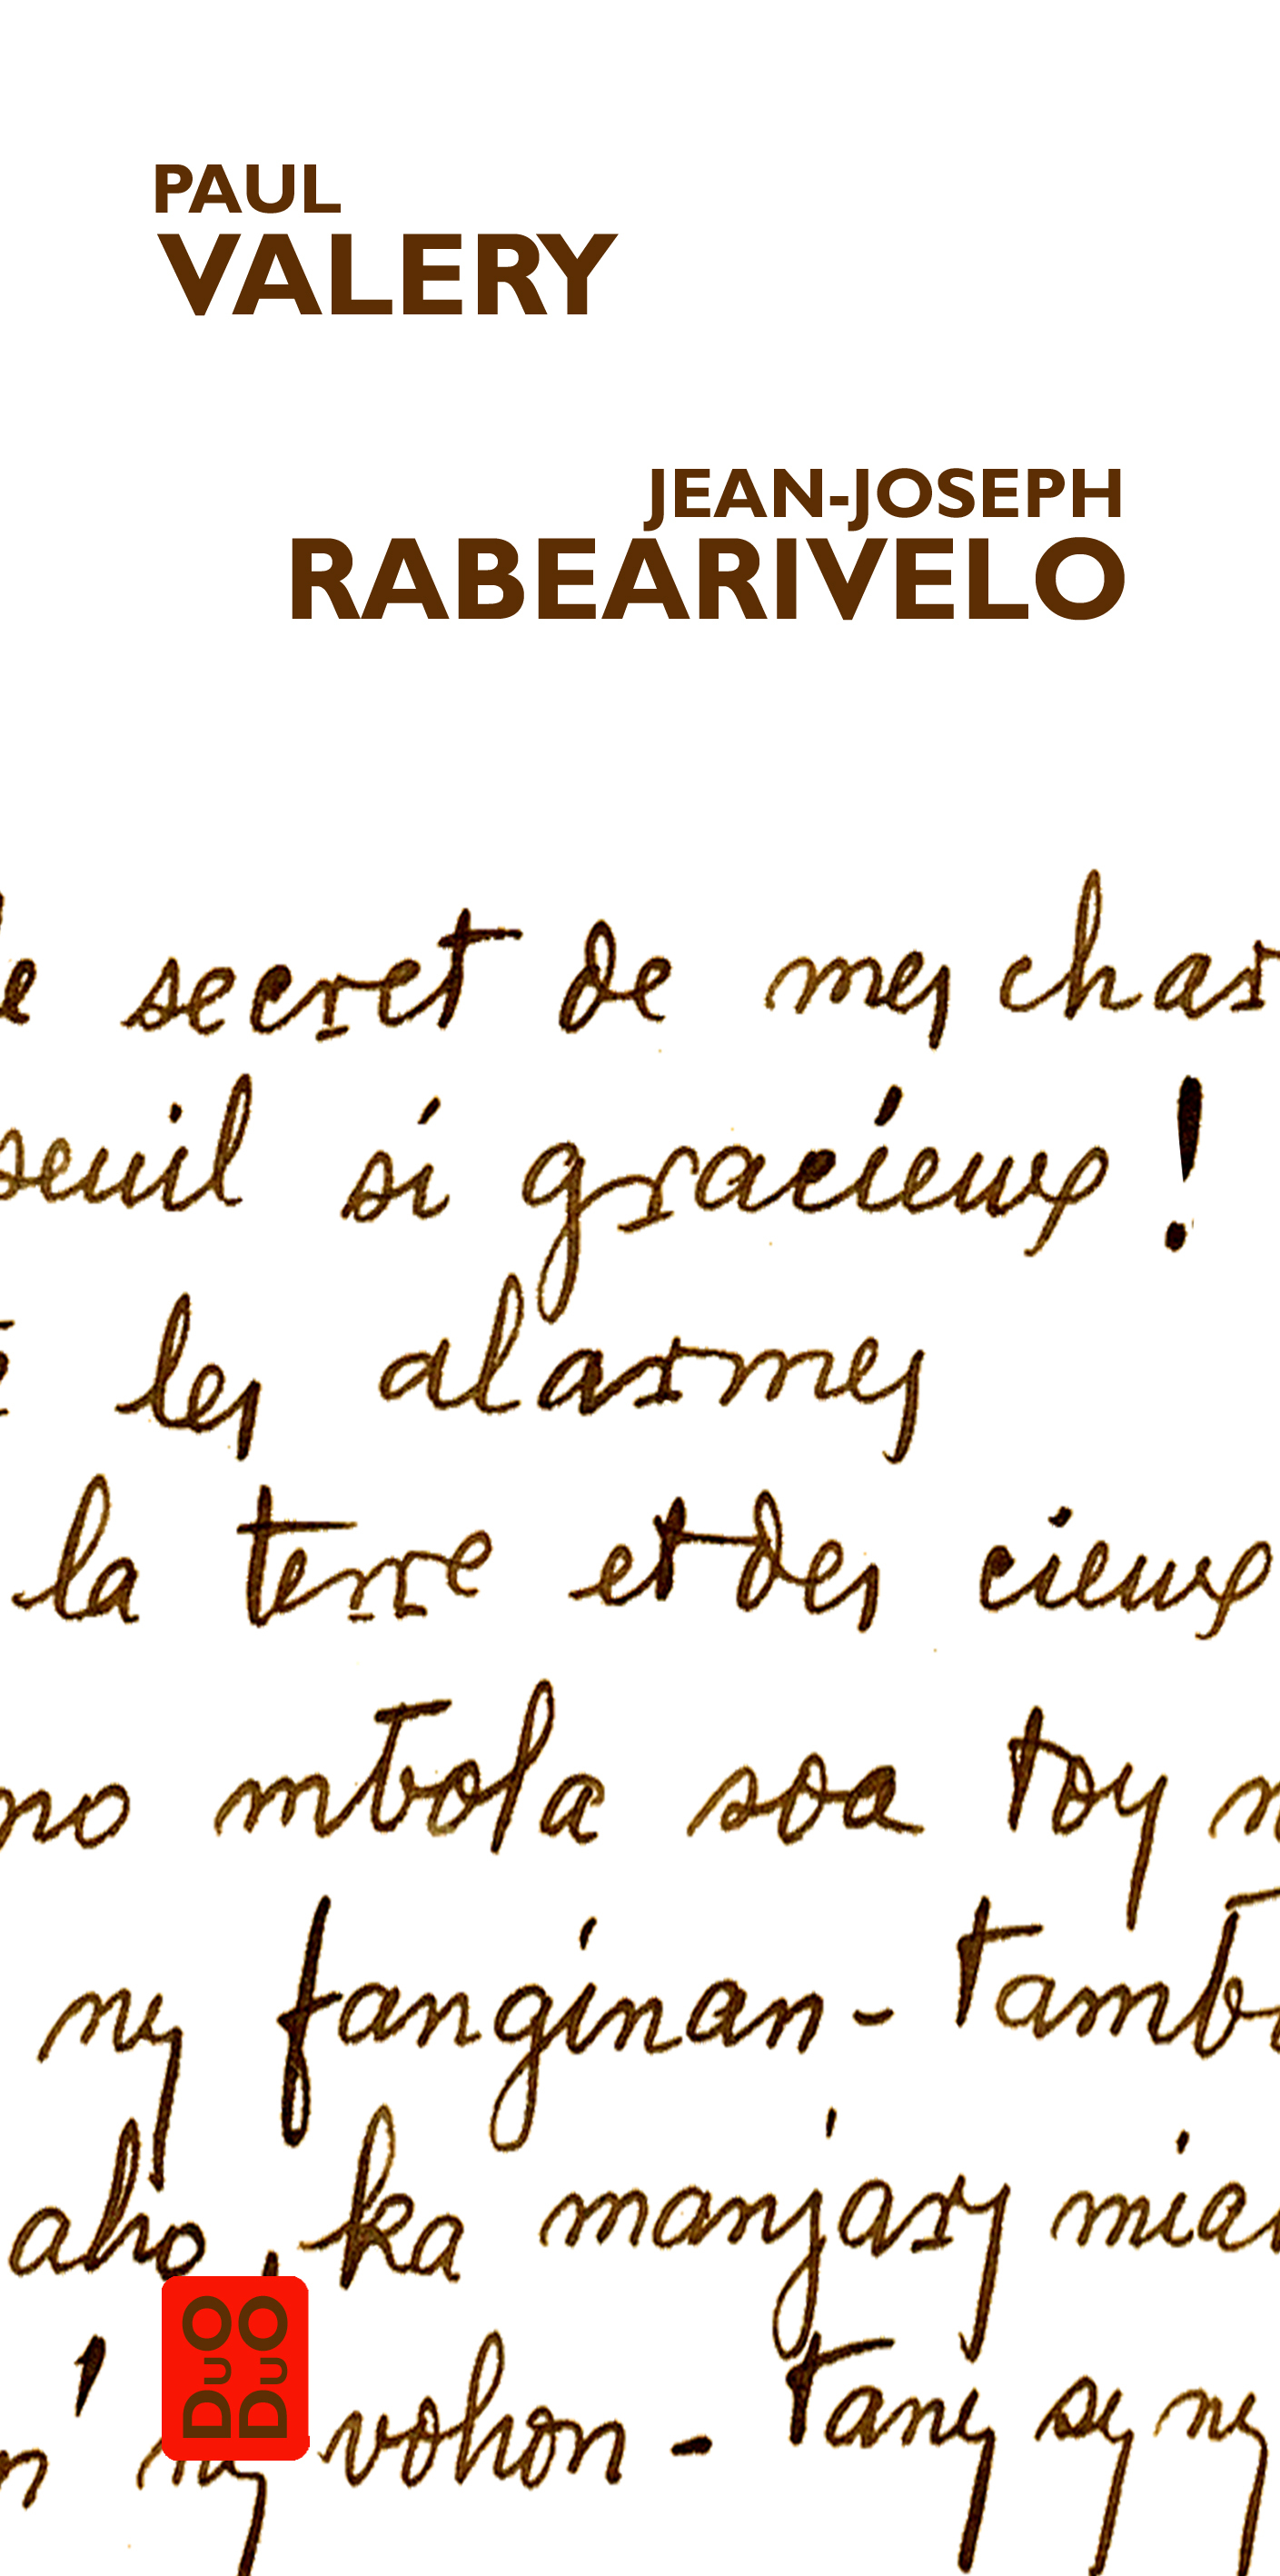 PAUL
VALERY
JEAN-JOSEPH
RABEARIVELO
secret de mes char
seuil si gracieux !
les alarmes
la terre et des cieux
no mbola soa toy
ny fanginan - tamb
aho, ka manjary mia
ny vohon - tany sy ny
DUO
DUO